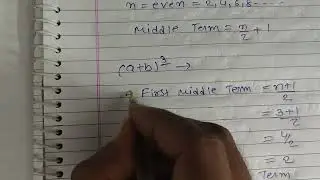 n = even = 2, 4, 6, 8 ----
Middle Term = n/2 + 1
(a+b)^3 →
First Middle Term = n+1/2
= 3+1/2
= 4/2
= 2
Term